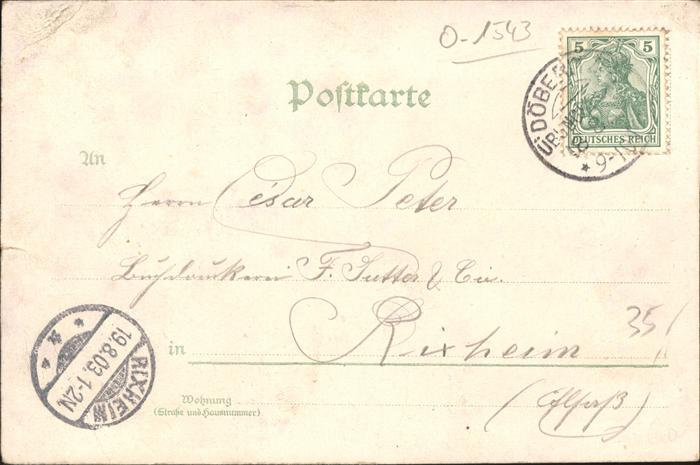 O-1543
5 5
DEUTSCHES REICH
9-10
Postkarte
An
Herrn César Peter
Buchdruckerei F. Sutter & Cie.
in Rixheim
35
(Elsaß)
Wohnung
(Straße und Hausnummer)
RIXHEIM
19.8.03. 1-2N